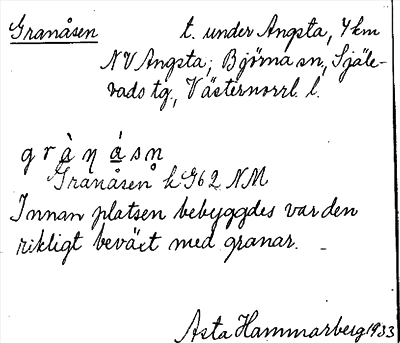 Granåsen t. under Angsta, 4 km
NV Angsta; Björna sn, Själe-
vads tg., Västernorrl. l.
g r à ŋ á s n̥
Granåsen k G62 NM
Innan platsen bebyggdes var den
rikligt beväxt med granar. –
Asta Hammarberg 1933